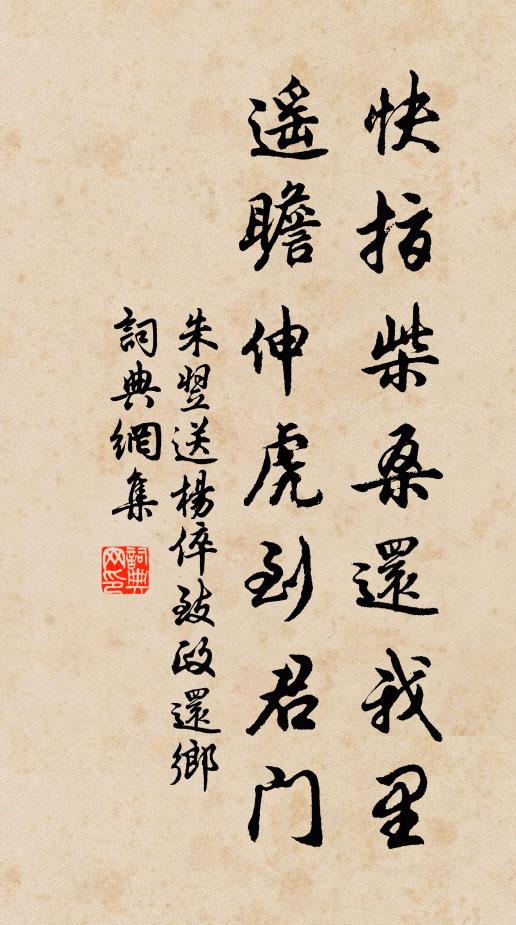 快指柴桑還我里
遥瞻伸虎到君門
朱翌送楊倅致政還鄉
詞典網集
詞典网印